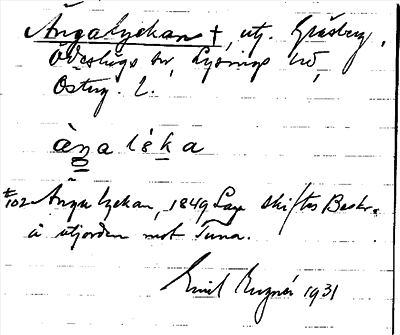 Ängalyckan †, utj. Gräsberg,
Ödeshögs sn, Lysings hd,
Österg. l.
àŋa lẹ́ka
102 Ängalyckan, 1849 Laga skiftes Beskr.
å utjorden mot Tuna.
Emil 1931